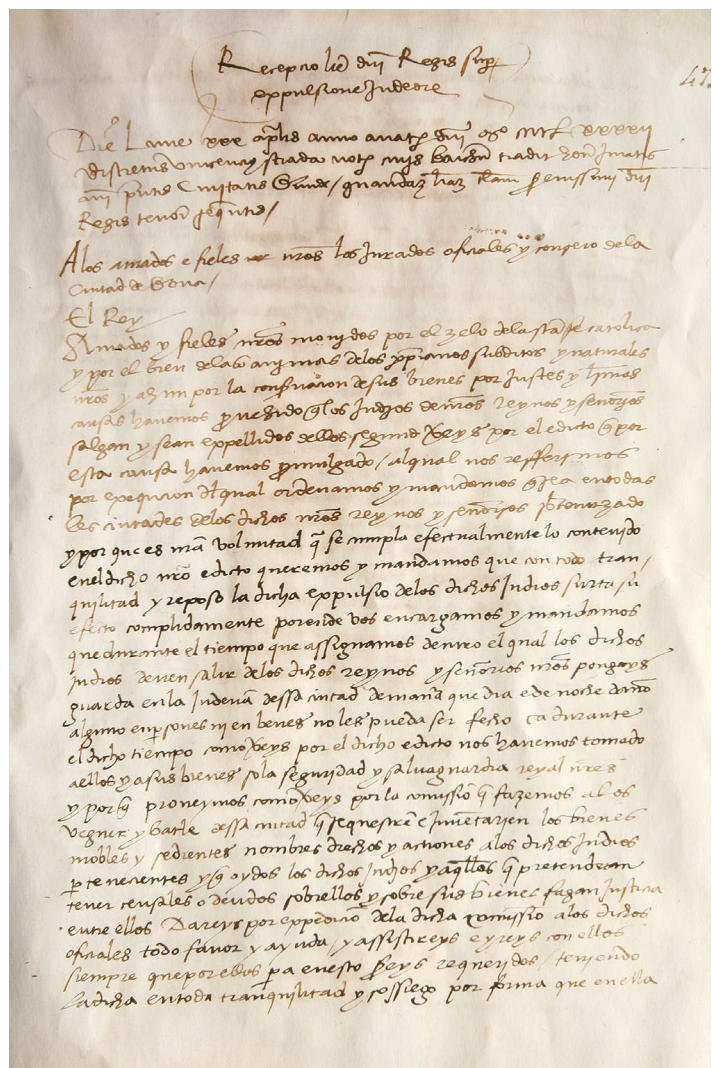 Recepcio lre dni Regis sup
expulsione Judeore
47
Die Lune xxx aplis anno a nat dni Mo CCCC LXXXXII
discretus vincencius strada not
ani pntis Civitatis Gerunde / quandaz lraz clam serenissimi dni
Regis tenor sequntis /
A los amados e fieles nros los Jurados oficiales y consejo dela
Ciutad de Gerona /
El Rey
Amados y fieles nros movidos por el zelo dela sta fe catolica
y por el bien delas animas delos xpianos subditos y naturales
nros y ahun por la conseruacion de sus bienes por justes y ligitimas
causas havemos prouehido q los Judios de nros reynos y senorios
salgan y sean expellidos dellos segund vereys por el edicto q por
esta causa havemos promulgado / al qual nos refferimos
por exequcion dl qual ordenamos y mandamos q sea en todas
las ciutades delos dichos nros reynos y senorios
y por que es nra voluntad q se cumpla efectualmente lo contenido
en el dicho nro edicto queremos y mandamos que con todo tran /
quilitad y reposo la dicha expulsio delos dichos Judios surta su
efecto complidamente por ende vos encargamos y mandamos
que durante el tiempo que assignamos dentro el qual los dichos
judios deuen salir delos dichos reynos y senorios nros pongays
guarda en la Juderia dessa ciutad de manera que dia e de noche danno
alguno en psones ni en benes no les pueda ser fecho ca durante
el dicho tiempo como vereys por el dicho edicto nos havemos tomado
a ellos y a sus bienes so la seguridad y saluaguardia reyal nres
y por q proueymos como vereys por la comissio q fazemos al os
veguer y batle dessa ciutad q sequestren e inuentarien los bienes
mobles y sedientes nombres drechos y actiones a los dichos Judios
ptenecientes y q oydos los dichos Judios y aqllos q pretenderan
tener censales o deudos sobrellos y sobre sus bienes fagan justicia
entre ellos Dareys por expedicio dela dicha comissio a los dichos
oficiales todo fauor y ayuda / y assistireys e yreys con ellos
siempre que por ellos pa en esto sereys requeridos / teniendo
la dicha en toda tranquilitad y sossiego por forma que en ella